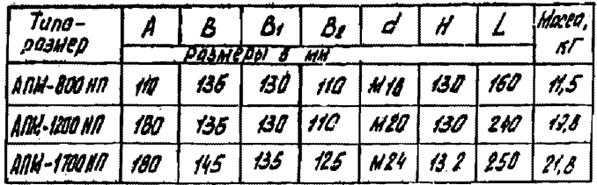 Типо-размер A B B1 B2 d H L Масса, кг
размеры в мм
АПМ-800 НП 110 135 130 110 М18 130 160 11,5
АПМ-1200 НП 180 135 130 110 М20 130 240 19,8
АПМ-1700 НП 180 145 135 125 М24 132 250 21,8